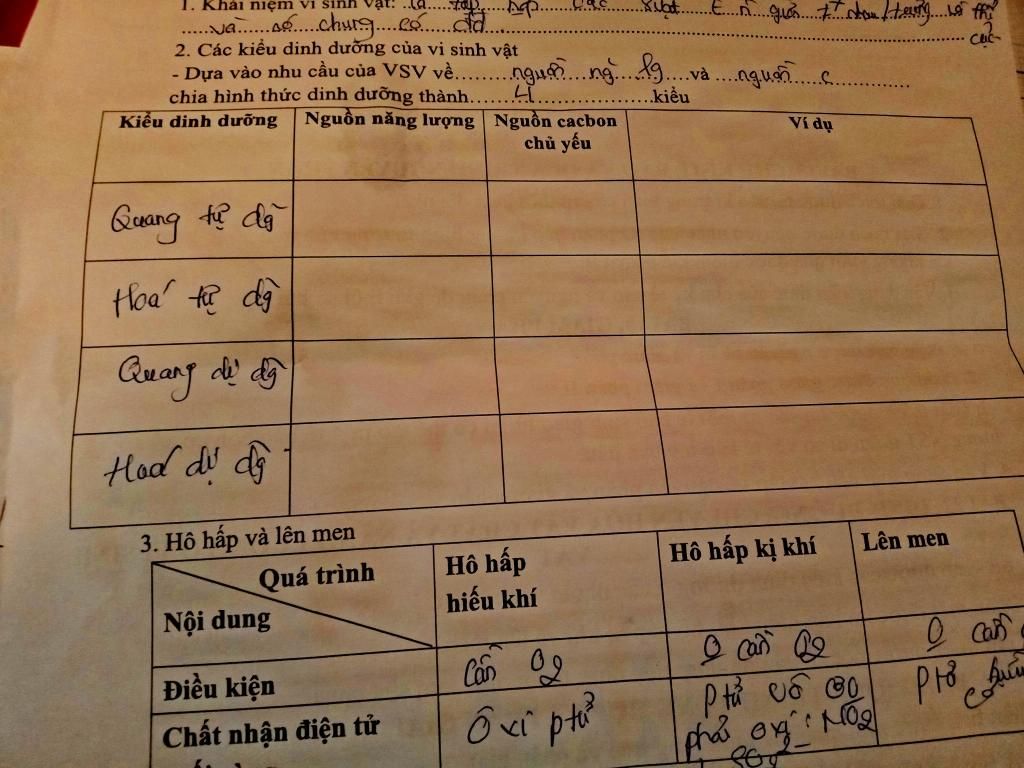 1. Khái niệm vi sinh vật: là tập hợp các
và có chung có
2. Các kiểu dinh dưỡng của vi sinh vật
- Dựa vào nhu cầu của VSV về......nguồn...ng̀...lg....và...nguồn...c
chia hình thức dinh dưỡng thành......4......kiểu
Kiểu dinh dưỡng Nguồn năng lượng Nguồn cacbon chủ yếu Ví dụ
Quang tự dg̃
Hoá tự dg̃
Quang dị dg̃
Hoá dị dg̃
3. Hô hấp và lên men
Quá trình
Nội dung
Hô hấp hiếu khí
Hô hấp kị khí
Lên men
Điều kiện
Cần O2
O cần O2
O cần
Chất nhận điện tử
Ôxi ptử
Ptử vô
phải oxi: NO2
Ptử